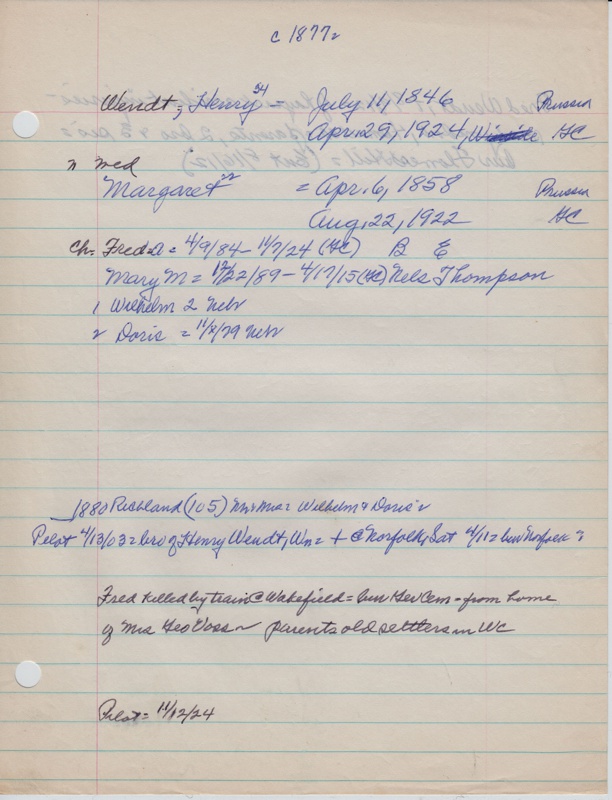 c 1877
Wendt, Henry 34 = July 11, 1846 Prussia
Apr. 29, 1924, GC
n med
Margaret 22 = Apr. 6, 1858 Prussia
Aug. 22, 1922 GC
Ch= Fred A = 4/9/84 - 11/7/24 (GC) B E
Mary M = 12/22/89 - 4/17/15 (GC) Nels Thompson
1 Wilhelm 2 Nebr
2 Doris = 11/8/79 Nebr
1880 Richland (105) Wilhelm & Doris
Pilot 4/13/03 = bro of Henry Wendt, Wm = + @ Norfolk, Sat 4/11 = bur Norfolk
Fred killed by train @ Wakefield = bur Ger Cem - from home
of Mrs Geo Voss ~ parents old settlers in WC
Pilot = 11/12/24